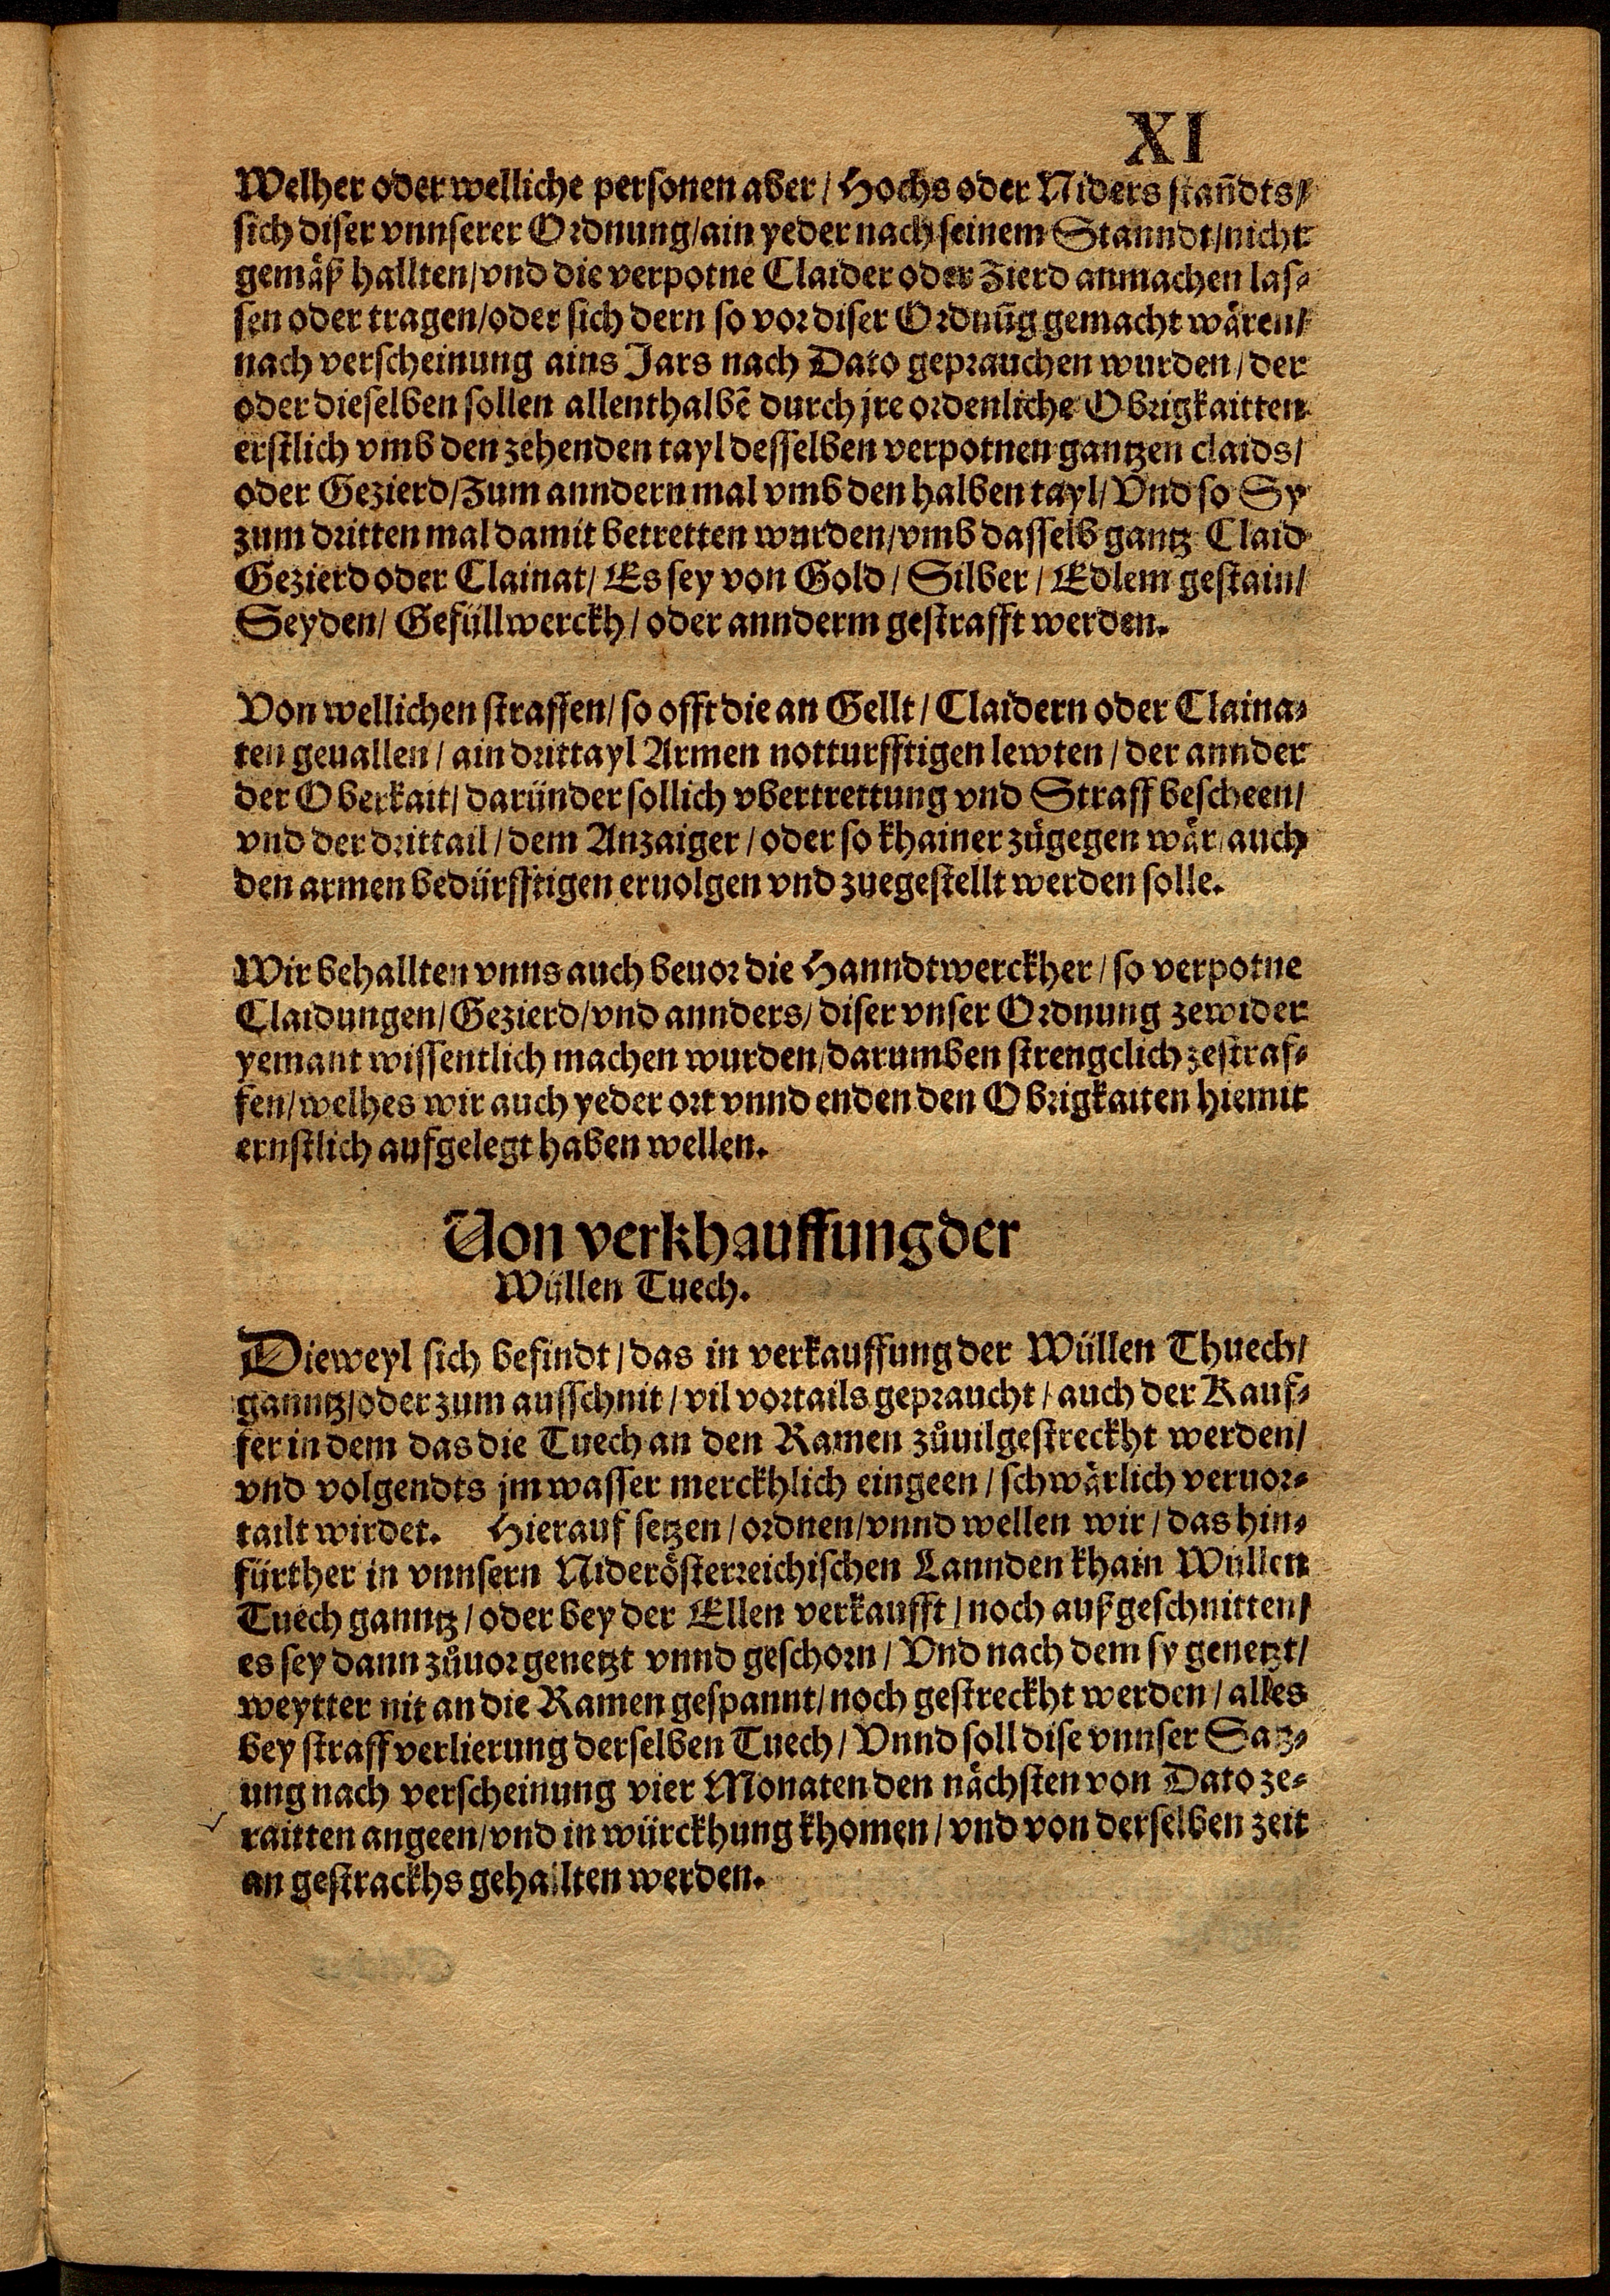 XI
Welher oder welliche personen aber / Hochs oder Niders stañdts /
sich diser vnnserer Ordnung / ain yeder nach seinem Stanndt / nicht
gemäß hallten / vnd die verpotne Claider oder Zierd anmachen las-
sen oder tragen / oder sich dern so vor diser Ordnũg gemacht wären /
nach verscheinung ains Jars nach Dato geprauchen wurden / der
oder dieselben sollen allenthalbẽ durch jre ordenliche Obrigkaitten
erstlich vmb den zehenden tayl desselben verpotnen gantzen claids /
oder Gezierd / Zum anndern mal vmb den halben tayl / Vnd so Sy
zum dritten mal damit betretten wurden / vmb dasselb gantz Claid
Gezierd oder Clainat / Es sey von Gold / Silber / Edlem gestain /
Seyden / Gefüllwerckh / oder annderm gestrafft werden.
Von wellichen straffen / so offt die an Gellt / Claidern oder Claina-
ten geuallen / ain drittayl Armen notturfftigen lewten / der annder
der Oberkait / daründer sollich vbertrettung vnd Straff bescheen /
vnd der drittail / dem Anzaiger / oder so khainer zůgegen wär / auch
den armen bedürfftigen eruolgen vnd zuegestellt werden solle.
Wir behallten vnns auch beuor die Hanndtwerckher / so verpotne
Claidungen / Gezierd / vnd annders / diser vnser Ordnung zewider
yemant wissentlich machen wurden / darumben strengclich zestraf-
fen / welhes wir auch yeder ort vnnd enden den Obrigkaiten hiemit
ernstlich aufgelegt haben wellen.
Von verkhauffung der
Wüllen Tuech.
Dieweyl sich befindt / das in verkauffung der Wüllen Thuech /
ganntz / oder zum ausschnit / vil vortails gepraucht / auch der Kauf-
fer in dem das die Tuech an den Ramen zůuil gestreckht werden /
vnd volgendts jm wasser merckhlich eingeen / schwärlich veruor-
tailt wirdet. Hierauf setzen / ordnen / vnnd wellen wir / das hin-
fürther in vnnsern Niderösterreichischen Lannden khain Wüllen
Tuech ganntz / oder bey der Ellen verkaufft / noch außgeschnitten /
es sey dann zůuor genetzt vnnd geschorn / Vnd nach dem sy genetzt /
weytter nit an die Ramen gespannt / noch gestreckht werden / alles
bey straff verlierung derselben Tuech / Vnnd soll dise vnnser Satz-
ung nach verscheinung vier Monaten den nächsten von Dato ze-
raitten angeen / vnd in würckhung khomen / vnd von derselben zeit
an gestrackhs gehallten werden.